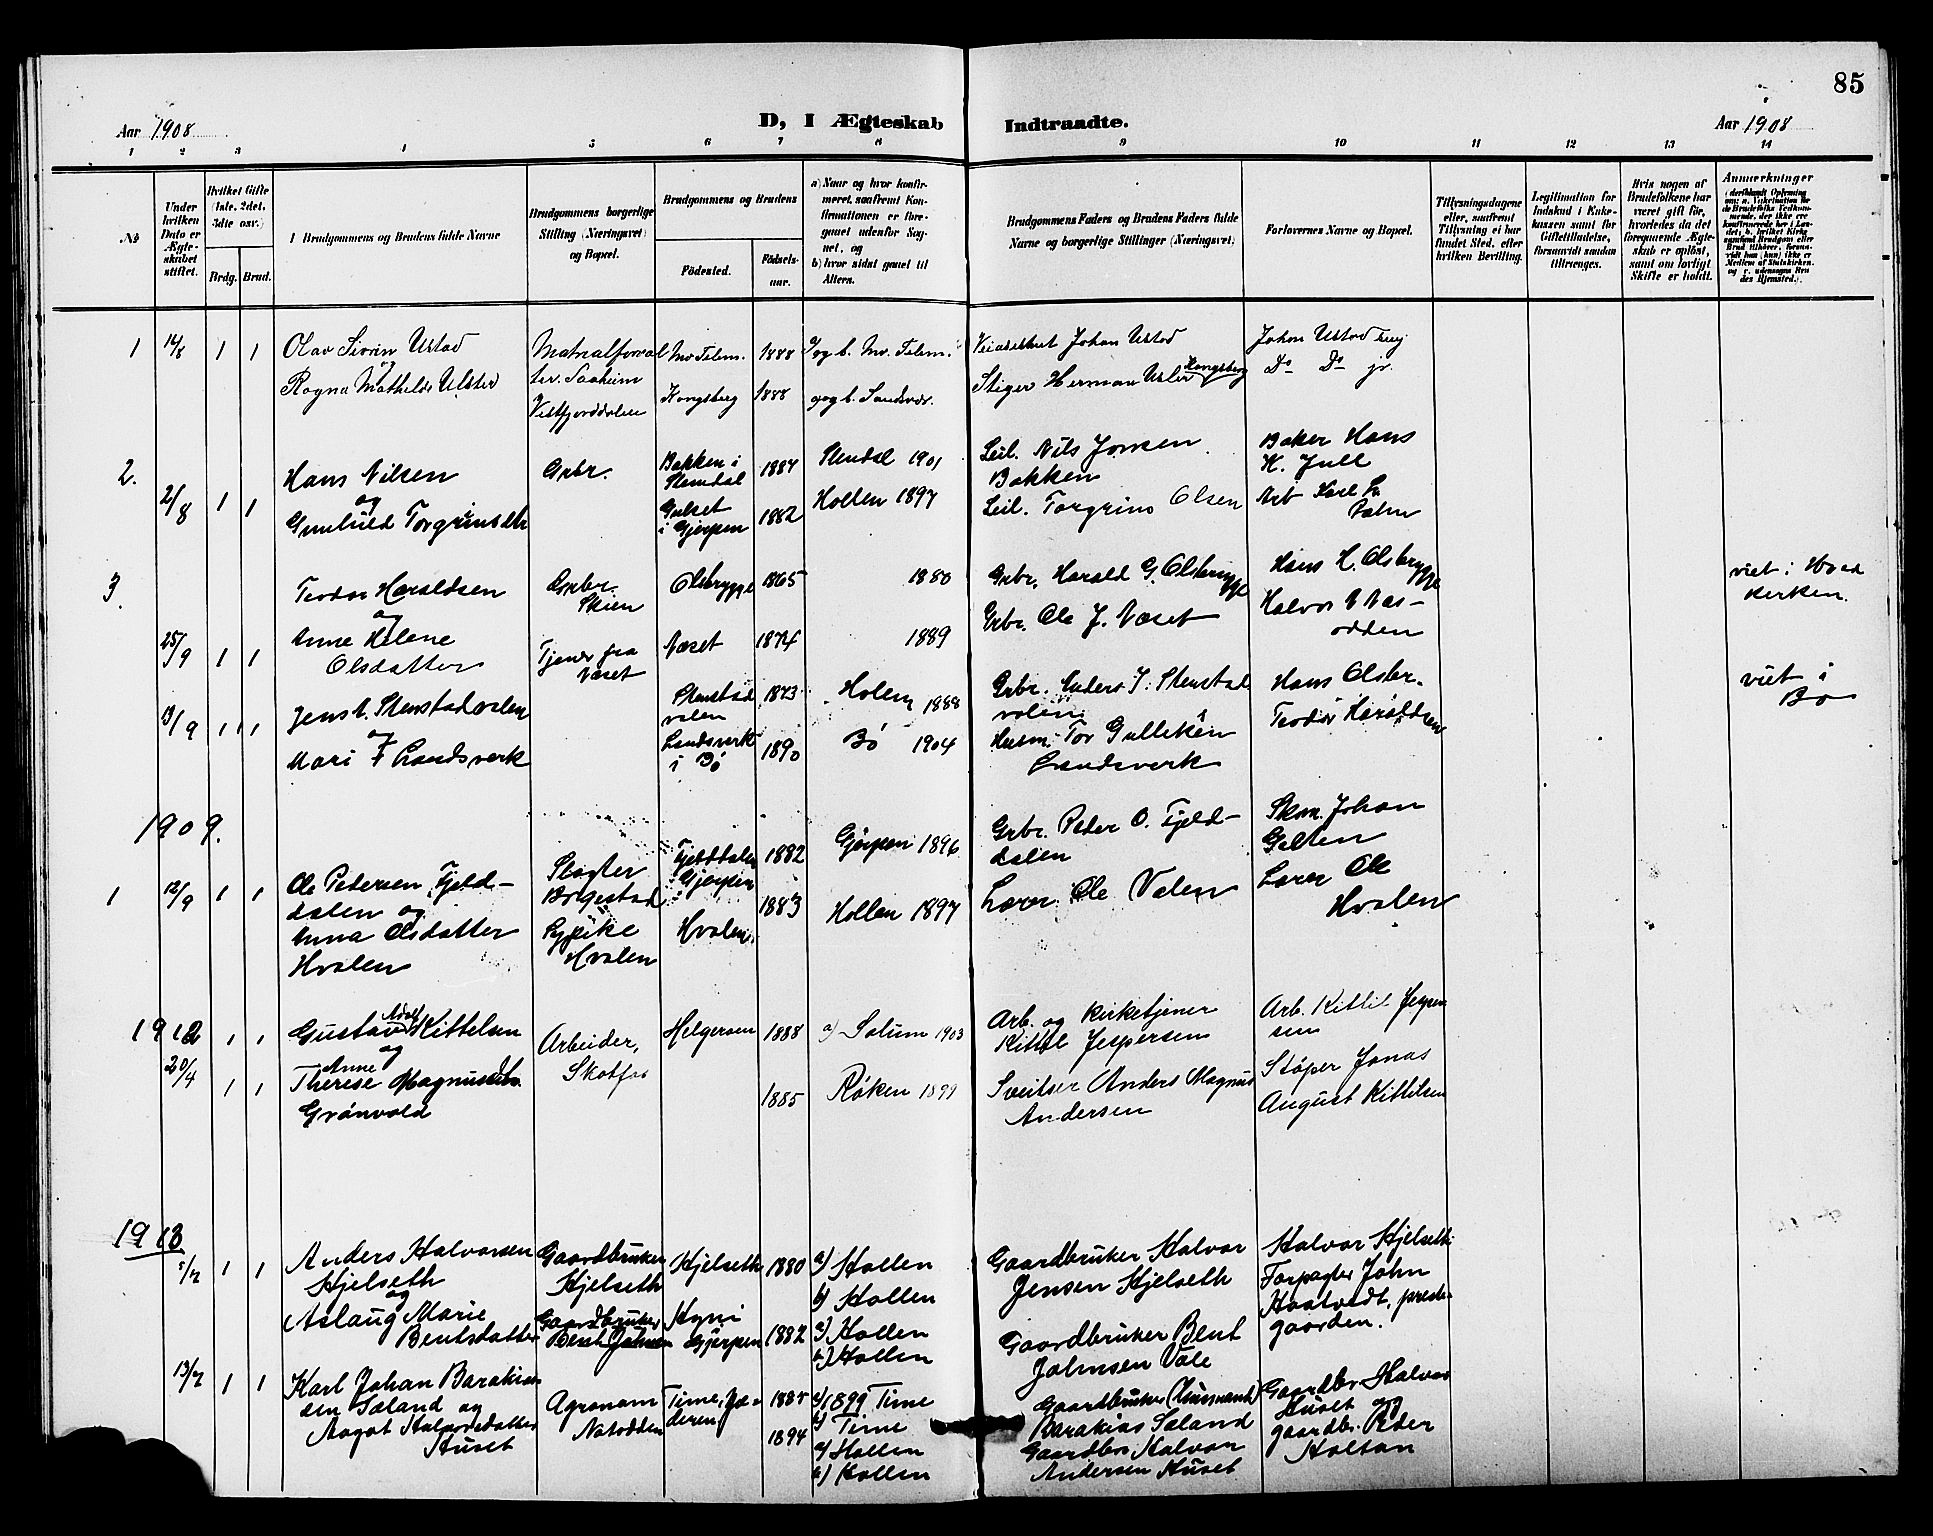 85
Aar 1908 D, I Ægteskab Indtraadte. Aar 1908
1 2 3 4 5 6 7 8 9 10 11 12 13 14
No
Under hvilken Dato er Ægte- skabet stiftet.
Hvilket Gifte (1ste, 2det, 3dte osv.)
Brdg. Brud.
Brudgommens og Brudens fulde Navne
Brudgommens borgerlige Stilling (Næringsvei) og Bopæl.
Brudgommens og Brudens
Födested. Födsels- aar.
a) Naar og hvor konfir- meret, saafremt Kon- firmationen er fore- gaaet udenfor Sog- net, og
b) hvor sidst gaaet til Alters.
Brudgommens Faders og Brudens Faders fulde Navne og borgerlige Stillinger (Næringsvei)
Forlovernes Navne og Bopæl.
Tillysningsdagene eller, saafremt Tillysning ei har fundet Sted, efter hvilken Bevilling.
Legitimation for Indskud i Enke- kassen samt for Giftetilladelse, forsaavidt saadan tiltrænges.
Hvis nogen af Brudefolkene har været gift før, hvorledes da det foregaaende Ægte- skab er opløst, samt om lovligt Skifte er holdt.
Anmærkninger
1 14/8 1 1 Olav Sivrin Ustad
og
Ragna Mathilde Ulster
Vestfjorddalen
1888
Kongsberg 1888
Johan Ustad
Stiger Herman Kongsberg
Johan Ustad
Do Do jr.
2. 2/8 1 1 Hans Nilsen
og
Gunhild Torgrimsdtr
Grbr.
Bakken i Slemdal 1887
Gulset i Gjerpen 1882
Slemdal 1901
Holden 1897
Leil. Nils Jonsen
Bakken
Leil. Torgrim Olsen
Baker Hans
K. Jull
Arb Karl
Palm
3. 25/9 1 1 Teodor Haraldsen
og
Anne Helene
Olsdatter
Grbr.
Skien
Tjener fra
Næset
Olsbrygge 1865
Næset 1874
1880
1889
Grbr. Harald G. Olsbrygge
Grbr. Ole J. Næset
Hans H. Olsbrygge
Halvor Næs-
odden
viet i Hved
kerken.
19/9 1 1 Jens A. Stenstadvalen
og
Mari T Landsverk
Stenstad
valen 1873
Landsverk
i Bö 1890
Holen 1888
Bö 1904
Grbr. Anders J. Stenstad
valen
Husm. Tor Gulliksen
Landsverk
Hans Olsbr.
Teodor Haraldsen
viet i
Bø
1909.
1 12/9 1 1 Ole Pedersen Fjeld-
dalen og
Anna Olsdatter
Hvalen
Slagter
Borgestad
Sypike
Hvalen
Fjelddalen
i Gjerpen 1882
Hvalen 1883
Gjerpen 1896
Hollen 1897
Grbr. Peder O. Fjeld-
dalen
Lærer Ole Valen
Skom. Johan
Galten
Lærer Ole
Hvalen
1912
20/4 1 1 Gustav Adolf Kittelsen
og
1 1 Anne
Therese Magnusdtr.
Grönvold
Arbeider,
Skotfos
Helgeroen 1888
1885
a) Solum 1903
Røken 1899
Arb. og Kirketjener
Kittil Jespersen
Sveitser Anders Magnus
Andersen
Arb. Kittil Jesper
sen
Støper Jonas
August Kittilsen
1913
5/7 1 1 Anders Halvorsen
Hjelseth
og
Aslaug Marie
Bentsdatter
Gaardbruker
Hjelseth
Gaardbruker
Bent Johnsen
Hjelseth 1880
Hyni
Gjerpen 1882
a) Hollen
b) Hollen
a) Hollen
b) Hollen
Gaardbruker Halvor
Jensen Hjelseth
Gaardbruker Bent
Johnsen Vale
Halvor Hjelseth
Forpagter John
Haatvedt, preste-
gaarden.
13/7 1 1 Karl Johan Barakias-
sen Sæland og
Aagot Halvorsdatter
Huset
Agronom
Notodden
Time, Jæ-
deren 1885
1894
a) 1899 Time
b) Time
a) Hollen
b) Hollen
Gaardbruker (Husmand)
Barakias Sæland
Gaardbr. Halvor
Andersen Huset
Gaardbr. Halvor
Huset og
gaardbr. Peder
Holtan